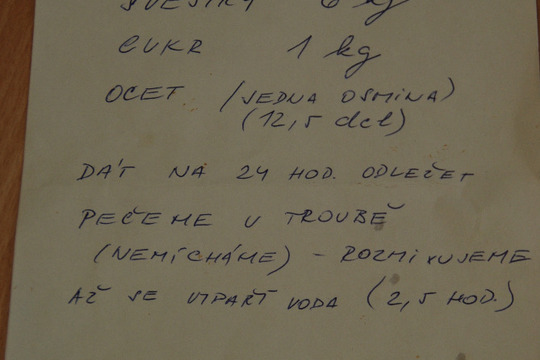 ŠVESTKY 6 kg
CUKR 1 kg
OCET (JEDNA OSMINA)
(12,5 dcl)
DÁT NA 24 HOD. ODLEŽET
PEČEME V TROUBĚ
(NEMÍCHÁME) - ROZMIXUJEME
AŽ SE VYPAŘÍ VODA (2,5 HOD.)